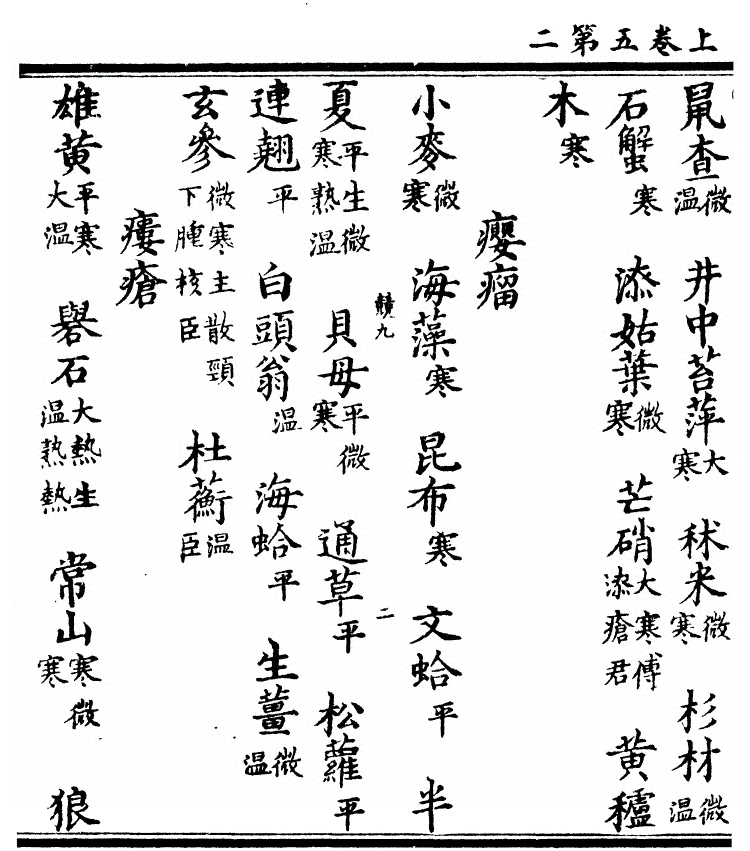 上卷五第二
鼠查微温 井中苔萍大寒 秫米微寒 杉材微温
石蟹寒 漆姑葉微寒 芒硝大寒傅漆瘡君 黄櫨
木寒
癭瘤
小麥微寒 海藻寒 昆布寒 文蛤平 半
夏平生微寒熟温 貝母平微寒 通草平 松蘿平
連翹平 白頭翁温 海蛤平 生薑微温
玄參微寒主散頸下腫核臣 杜蘅温臣
瘻瘡
雄黄平寒大温 礜石大熱生温熟熱 常山寒微寒 狼
二